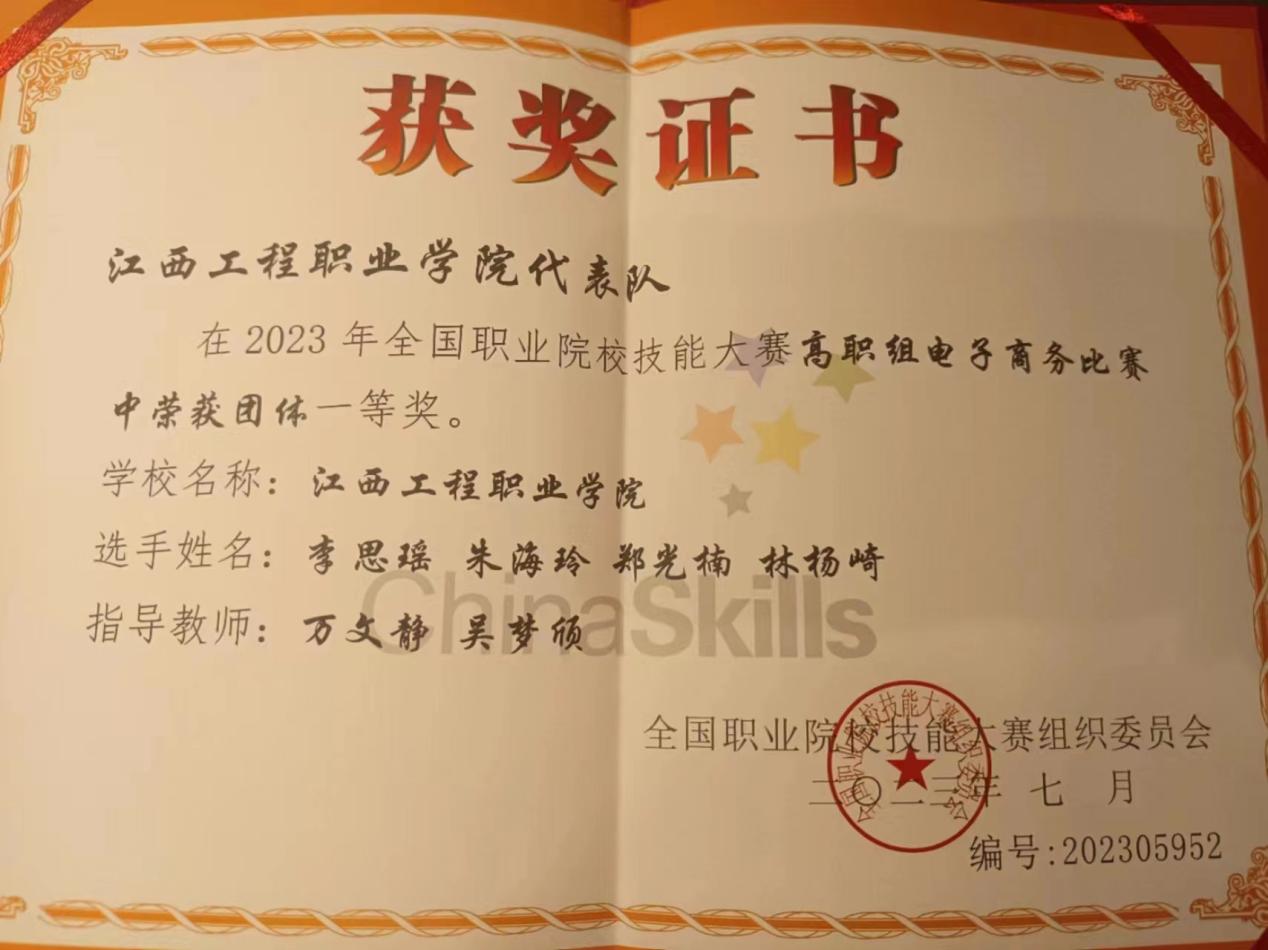 获奖证书
江西工程职业学院代表队
在2023年全国职业院校技能大赛高职组电子商务比赛
中荣获团体一等奖。
学校名称：江西工程职业学院
选手姓名：李思瑶 朱海玲 郑光楠 林杨崎
指导教师：万文静 吴梦颀
ChinaSkills
全国职业院校技能大赛组织委员会
二〇二三年 七 月
全国职业院校技能大赛组织委员会
编号:202305952